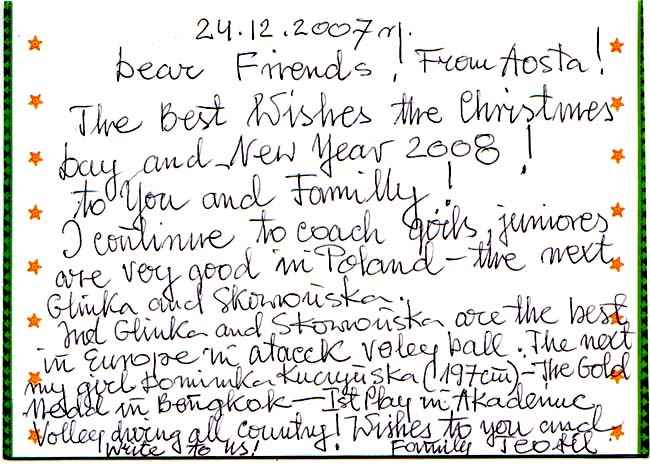 24.12.2007 r.
Dear Friends! From Aosta!
The Best Wishes the Christmes
Day and New Year 2008!
to You and Familly!
I continue to coach girls, juniores
are very good in Poland – the next
Glinka and Skowońska.
And Glinka and Skowrońska are the best
in Europe in atacck voley ball. The next
my girl Dominika Kuczyńska (197cm) – The Gold
Medal in Bongkok – Ist Play in Akademic
Volley during all country! Wishes to you and
Write to us! Familly Teofil